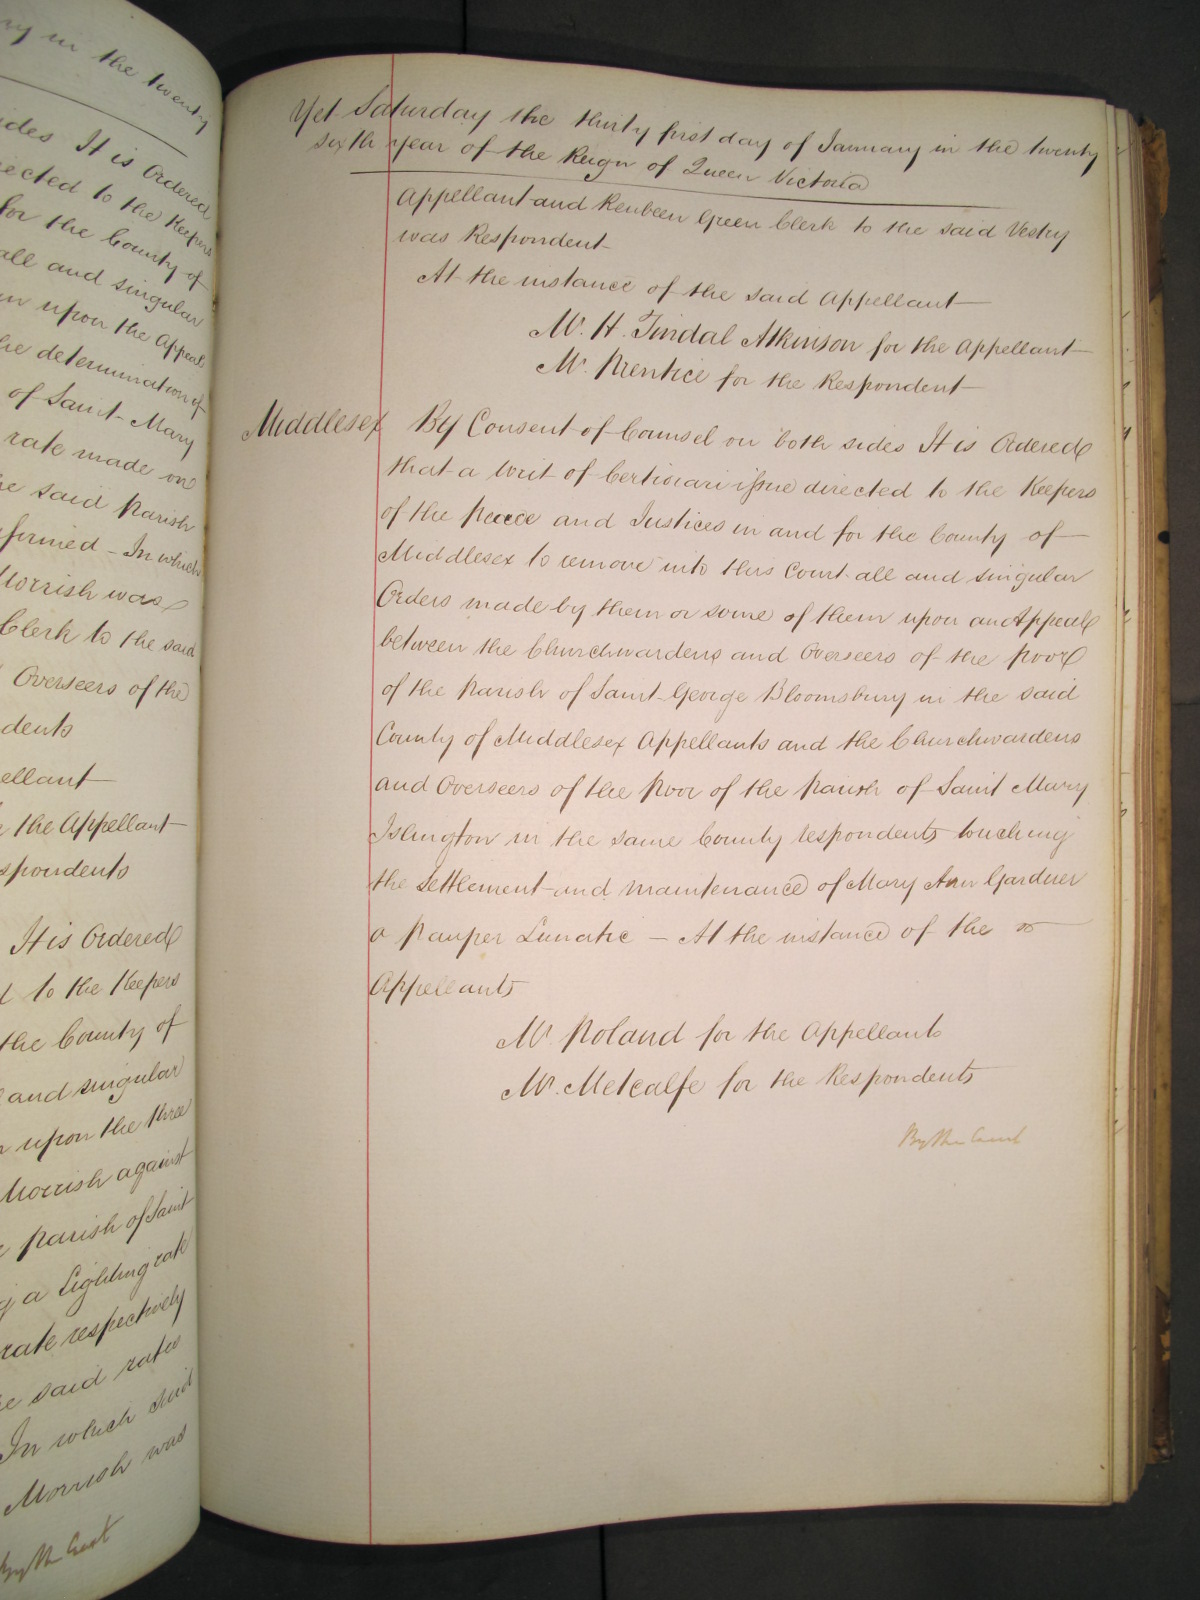 ry in the twenty
sides It is Ordered
rected to the Keepers
for the County of
all and singular
en upon the Appeal
he determination of
of Saint Mary
rate made on
he said Parish
firmed – In which
Morrish was
Clerk to the said
Overseers of the
dents
ellant
the Appellant
spondents
It is Ordered
d to the Keepers
the County of
and singular
n upon the three
Morrish against
Parish of Saint
g a Lighting rate
rate respectively
he said rates
In which said
Morrish was
By the Court
Yet Saturday the thirty first day of January in the twenty
sixth year of the Reign of Queen Victoria
Appellant and Reubeen Green Clerk to the said Vestry
was Respondent
At the instance of the said Appellant
Mr. H. Tindal Atkinson for the Appellant
Mr. Prentice for the Respondent
Middlesex By Consent of Counsel on both sides It is Ordered
that a Writ of Certiorari issue directed to the Keepers
of the Peace and Justices in and for the County of
Middlesex to remove into this Court all and singular
Orders made by them or some of them upon an Appeal
between the Churchwardens and Overseers of the poor
of the Parish of Saint George Bloomsbury in the said
County of Middlesex Appellants and the Churchwardens
and Overseers of the Poor of the Parish of Saint Mary
Islington in the same County respondents touching
the Settlement and maintenance of Mary Ann Gardner
a Pauper Lunatic – At the instance of the
Appellants
Mr. Poland for the Appellants
Mr. Metcalfe for the Respondents
By the Court